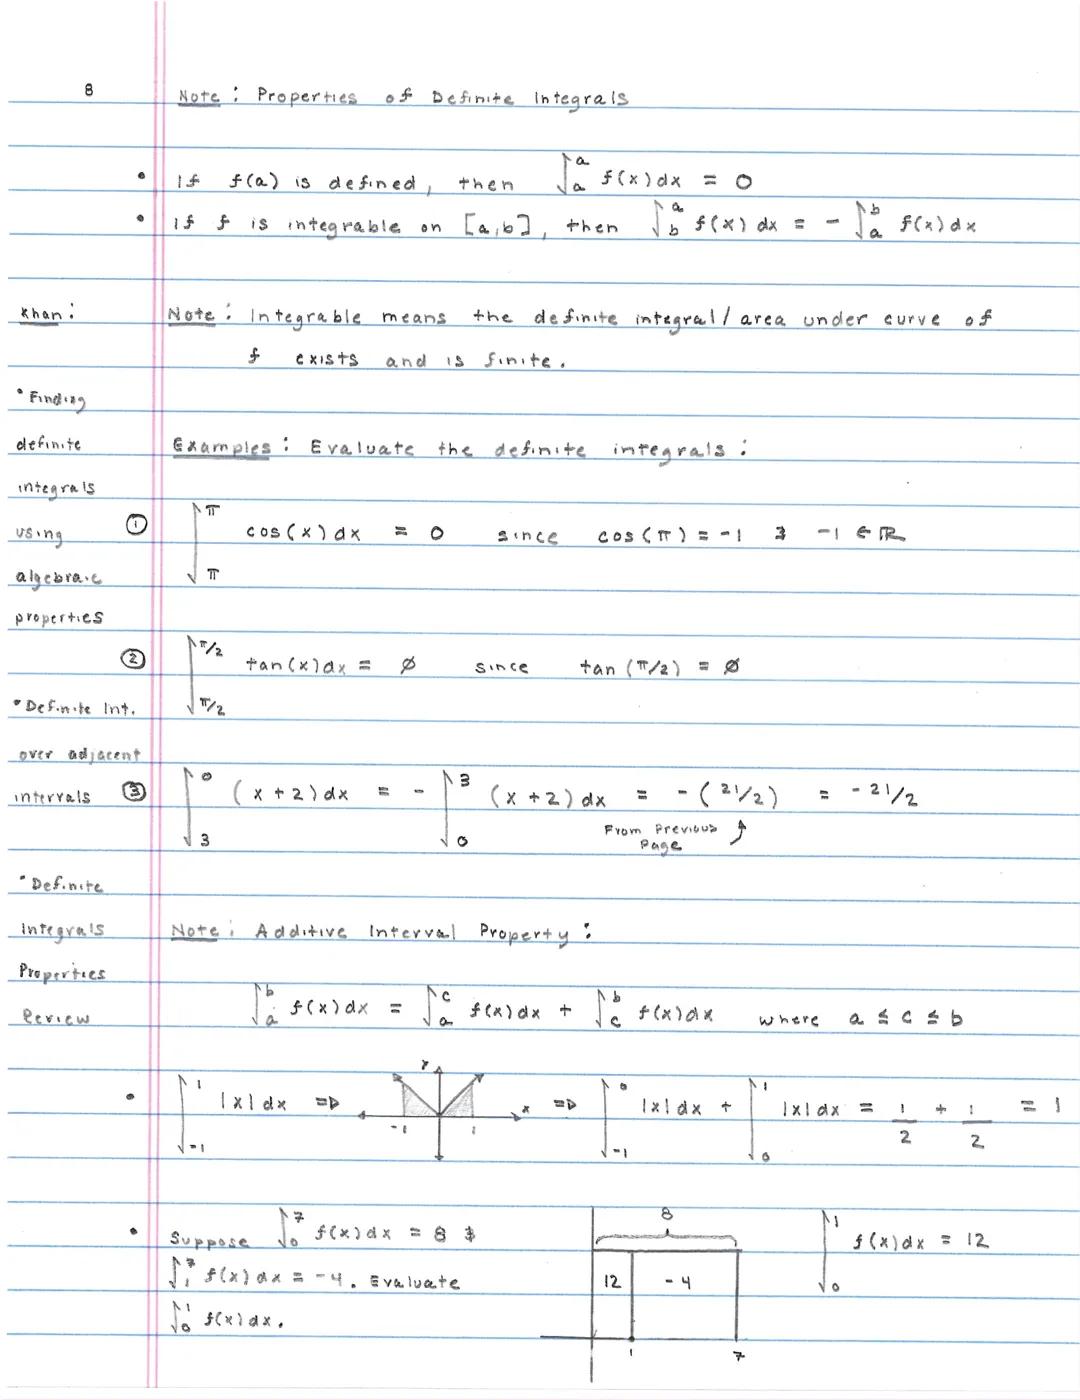 8
Note: Properties of Definite Integrals
• If f(a) is defined, then ∫_a^a f(x)dx = 0
• If f is integrable on [a,b], then ∫_b^a f(x) dx = - ∫_a^b f(x)dx
Khan:
Note: Integrable means the definite integral/area under curve of
f exists and is finite.
• Finding
definite
integrals
using
algebraic
properties
• Definite Int.
over adjacent
intervals
• Definite
Integrals
Properties
Review
Examples: Evaluate the definite integrals:
① ∫_π^π cos(x)dx = 0 since cos(π) = -1 ∋ -1 ∈ ℝ
② ∫_{π/2}^{π/2} tan(x)dx = ∅ since tan(π/2) = ∅
③ ∫_3^0 (x+2)dx = - ∫_0^3 (x+2)dx = -(21/2) = -21/2
From Previous
Page
Note: Additive Interval Property:
∫_a^b f(x)dx = ∫_a^c f(x)dx + ∫_c^b f(x)dx where a ≤ c ≤ b
• ∫_{-1}^1 |x|dx ⇒ y x -1 1 ⇒ ∫_{-1}^0 |x|dx + ∫_0^1 |x|dx = 1/2 + 1/2 = 1
• Suppose ∫_0^7 f(x)dx = 8 &
∫_1^7 f(x)dx = -4. Evaluate
∫_0^1 f(x)dx.
8
12 -4
1 7
∫_0^1 f(x)dx = 12